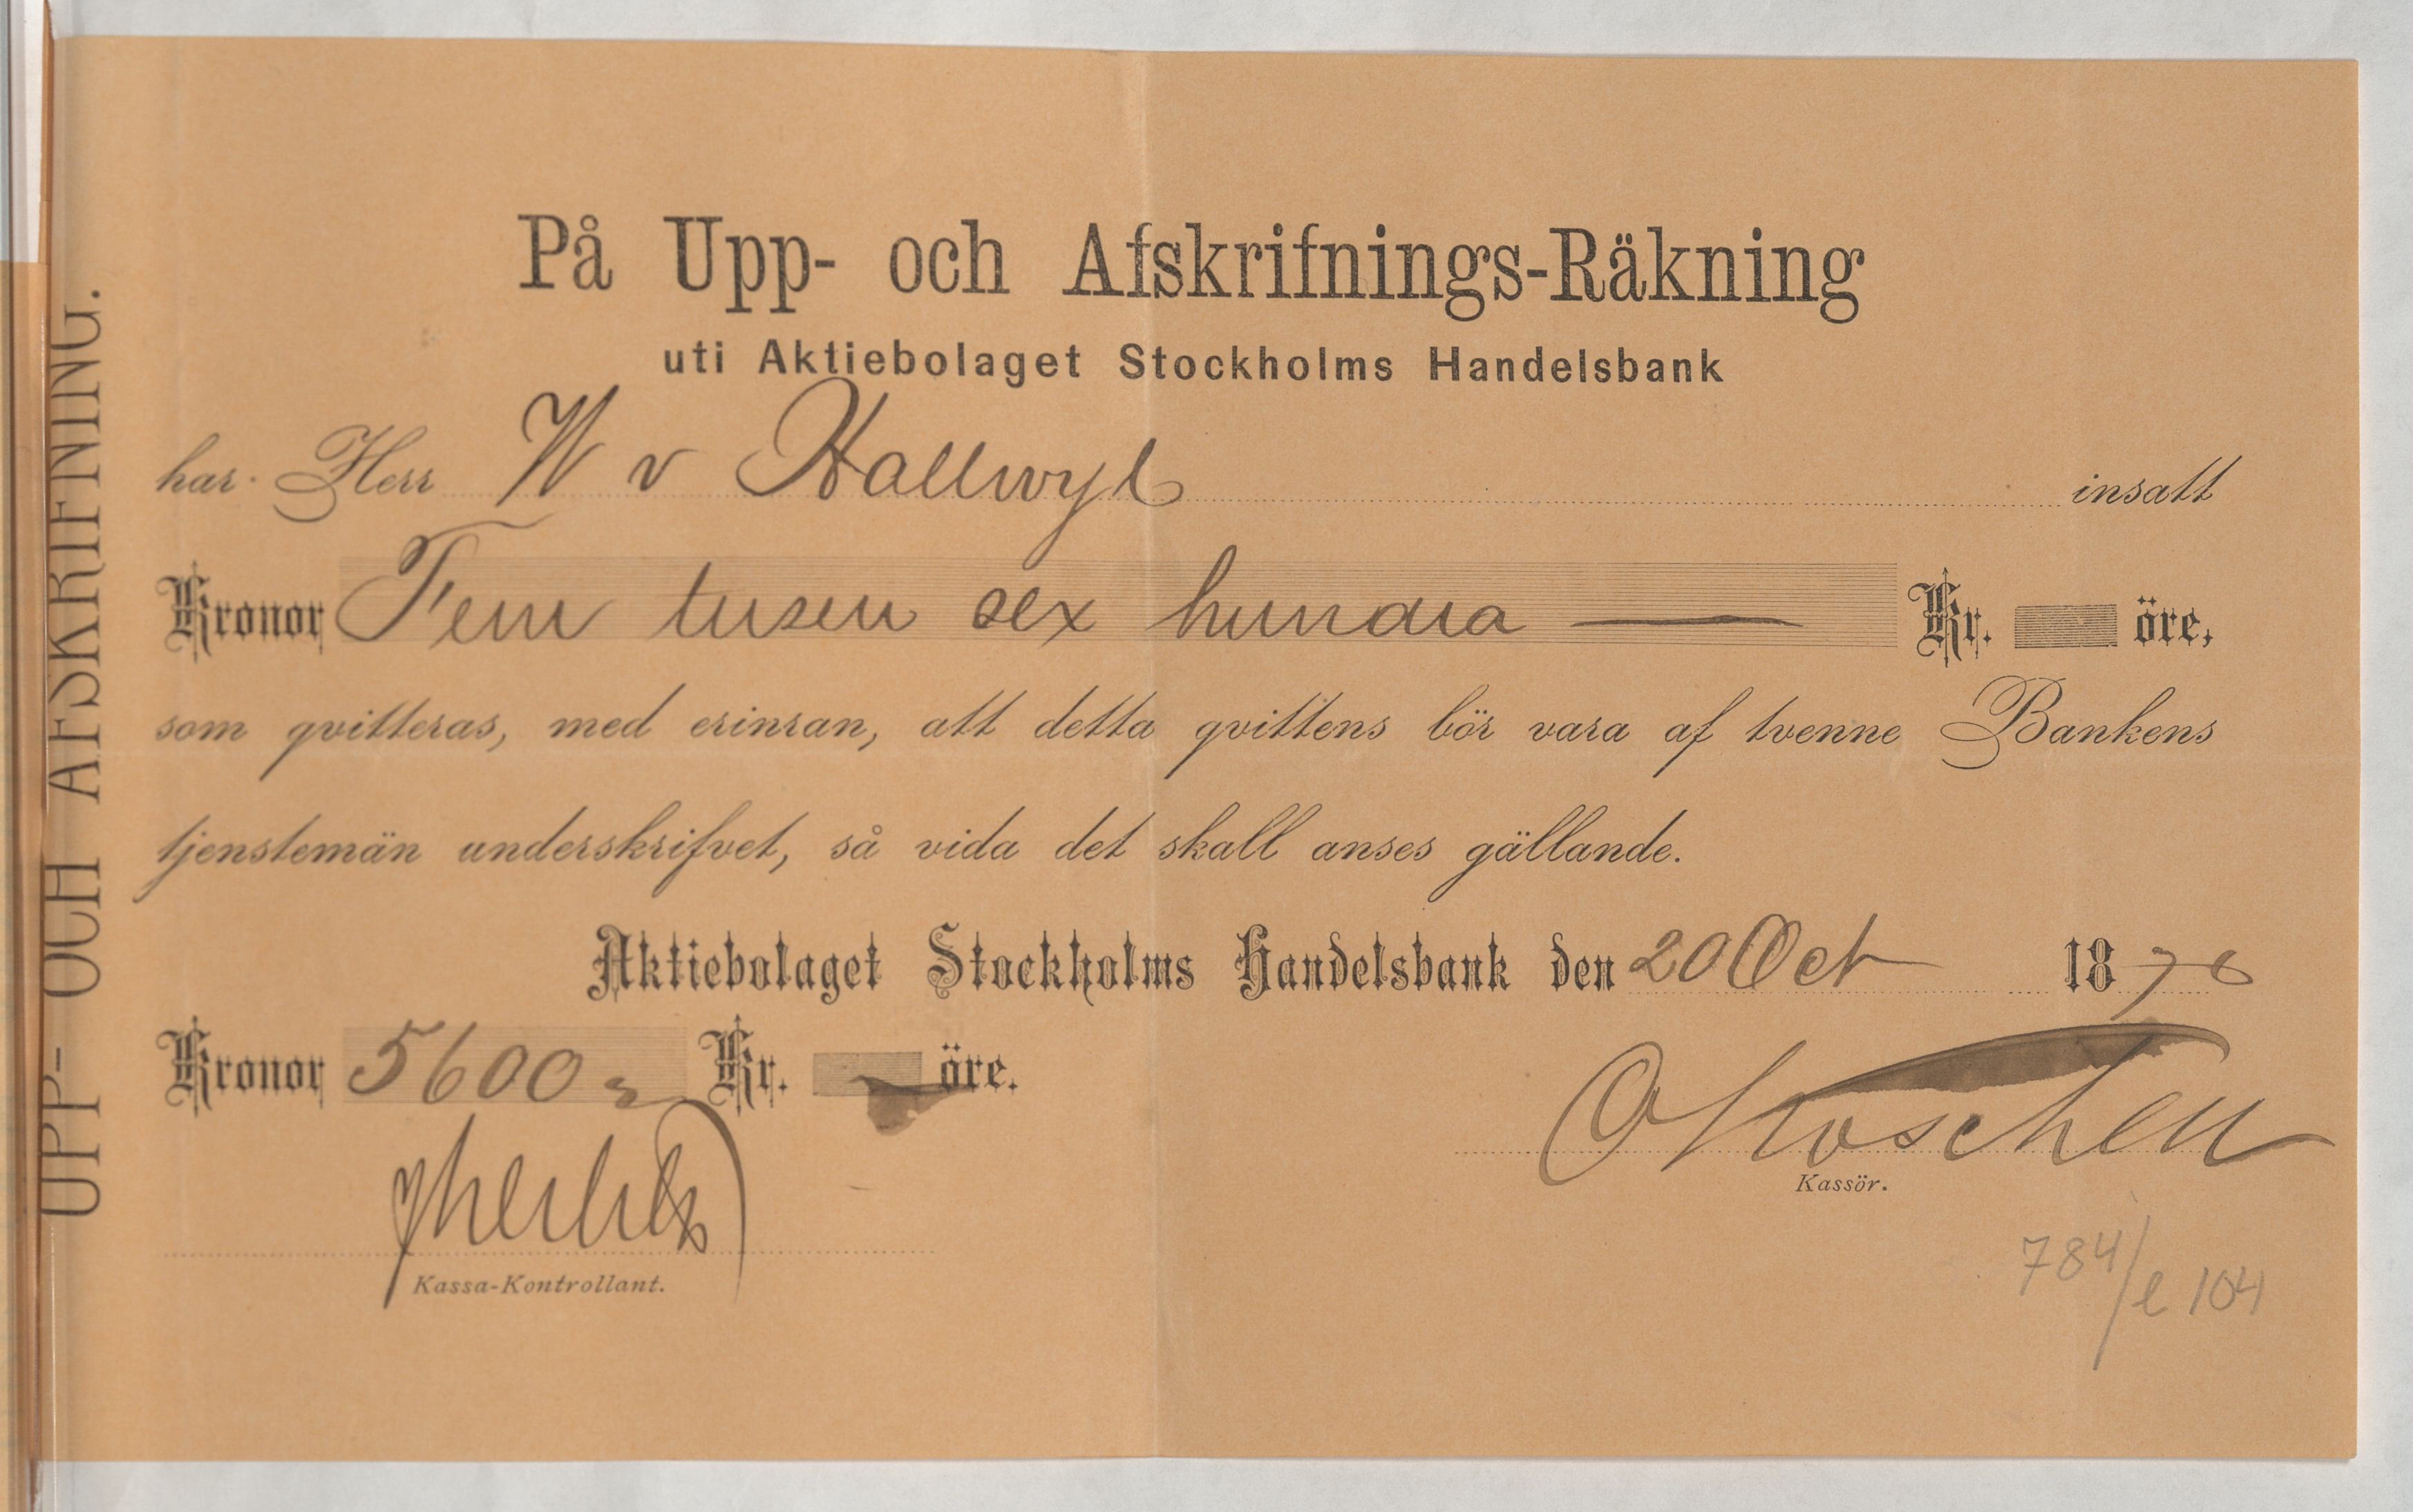 UPP- OCH AFSKRIFNING.
På Upp- och Afskrifnings-Räkning
uti Aktiebolaget Stockholms Handelsbank
har Herr W v Hallwyl insatt
Kronor Fem tusen sex hundra — Kr. öre,
som qvitteras, med erinran, att detta qvittens bör vara af tvenne Bankens
tjenstemän underskrifvet, så vida det skall anses gällande.
Aktiebolaget Stockholms Handelsbank den 20 Oct 1876
Kronor 5600 Kr. öre.
Kassör.
Kassa-Kontrollant.
784/e 104